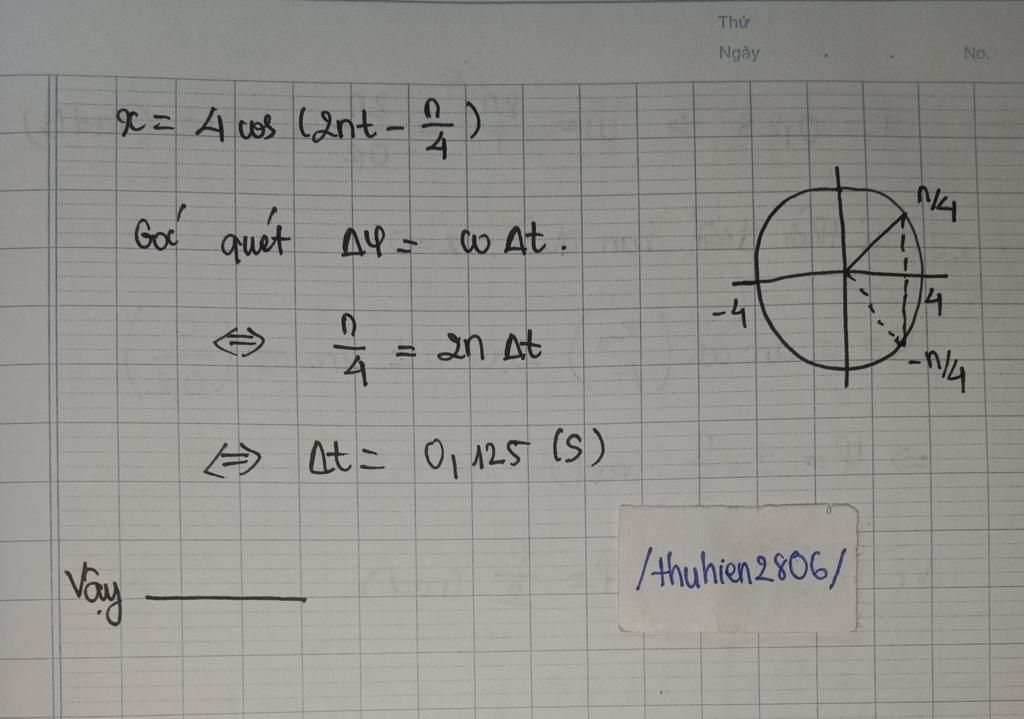 Thứ
Ngày . . No.
x = 4 cos (2πt - π/4)
Góc quét Δφ = ω Δt.
⇔ π/4 = 2π Δt
⇔ Δt = 0,125 (s)
Vậy
π/4
-4
4
-π/4
/thuhien2806/